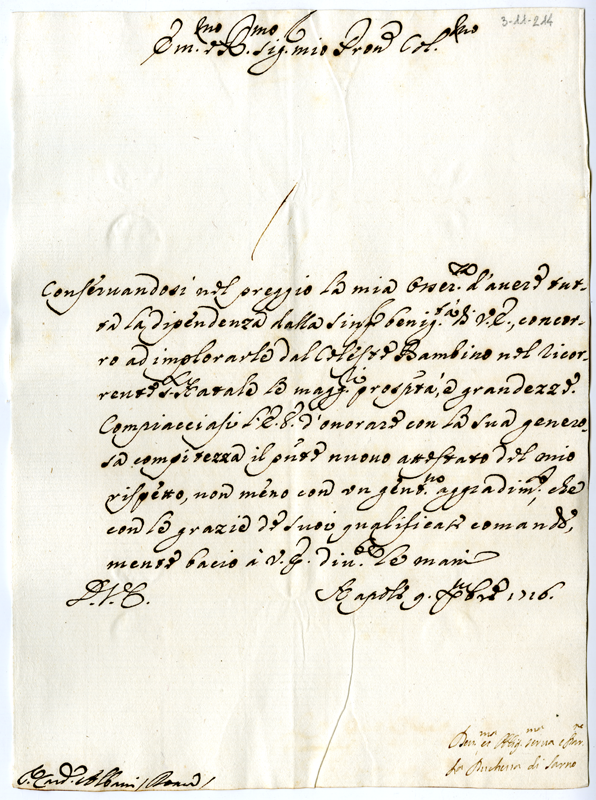 3-11-214
Em.mo e R.mo Sig.r mio Pron Col.mo
Conseruandosi nel preggio la mia Osser.za d'auere tut-
ta la dipendenza dalla sing.r benig.tà di V.E., concor-
ro ad implorarle dal Celeste Bambino nel ricor-
rente S. Natale le magg.ri prosp.tà, e grandezze.
Compiacciasi l'E.V. d'onorare con la sua genero-
sa compitezza il pnte nuouo attestato del mio
rispetto, non meno con un gent.mo aggradim.to, che
con le grazie de suoi qualificati comandi,
mentre bacio à V.E. diu.te le mani
D.V.E.
Napoli 9. Xmbre 1716.
Diu.ma et Obbg.ma serua e Par.
La Duchessa di Sarno
S.r Card.e Albani / Roma /